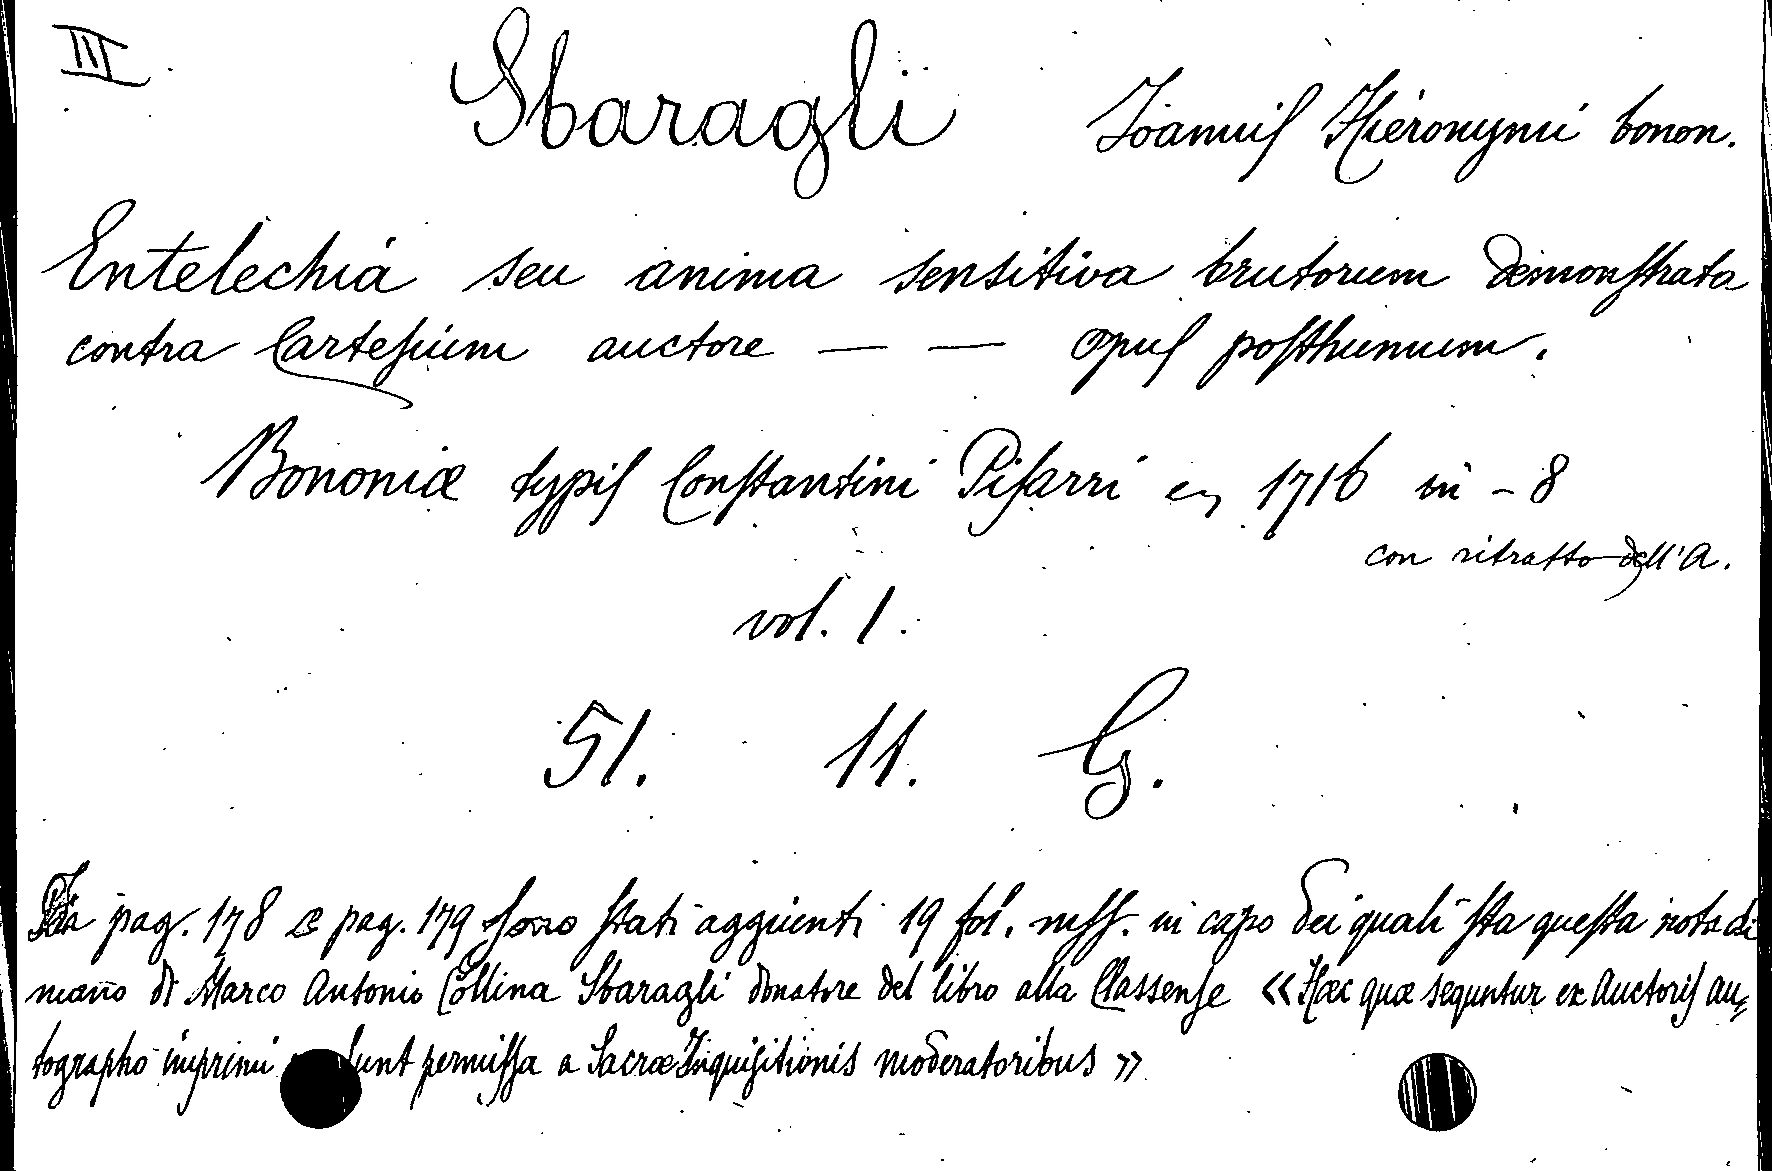 III
Sbaragli Ioannis Hieronymi bonon.
Entelechia seu anima sensitiva brutorum demonstrata
contra Cartesium auctore — — opus posthumum.
Bononiæ typis Constantini Pisarri 1716 in - 8
con ritratto dell'A.
vol. 1.
51. 11. G.
pag. 178 e pag. 179 sono stati aggiunti 19 fol. mss. in capo dei quali sta questa nota di
mano di Marco Antonio Collina Sbaragli donatore del libro alla Classense « Hæc quæ sequntur ex Auctoris au=
tographo imprimi sunt permissa a Sacræ Inquisitionis moderatoribus »